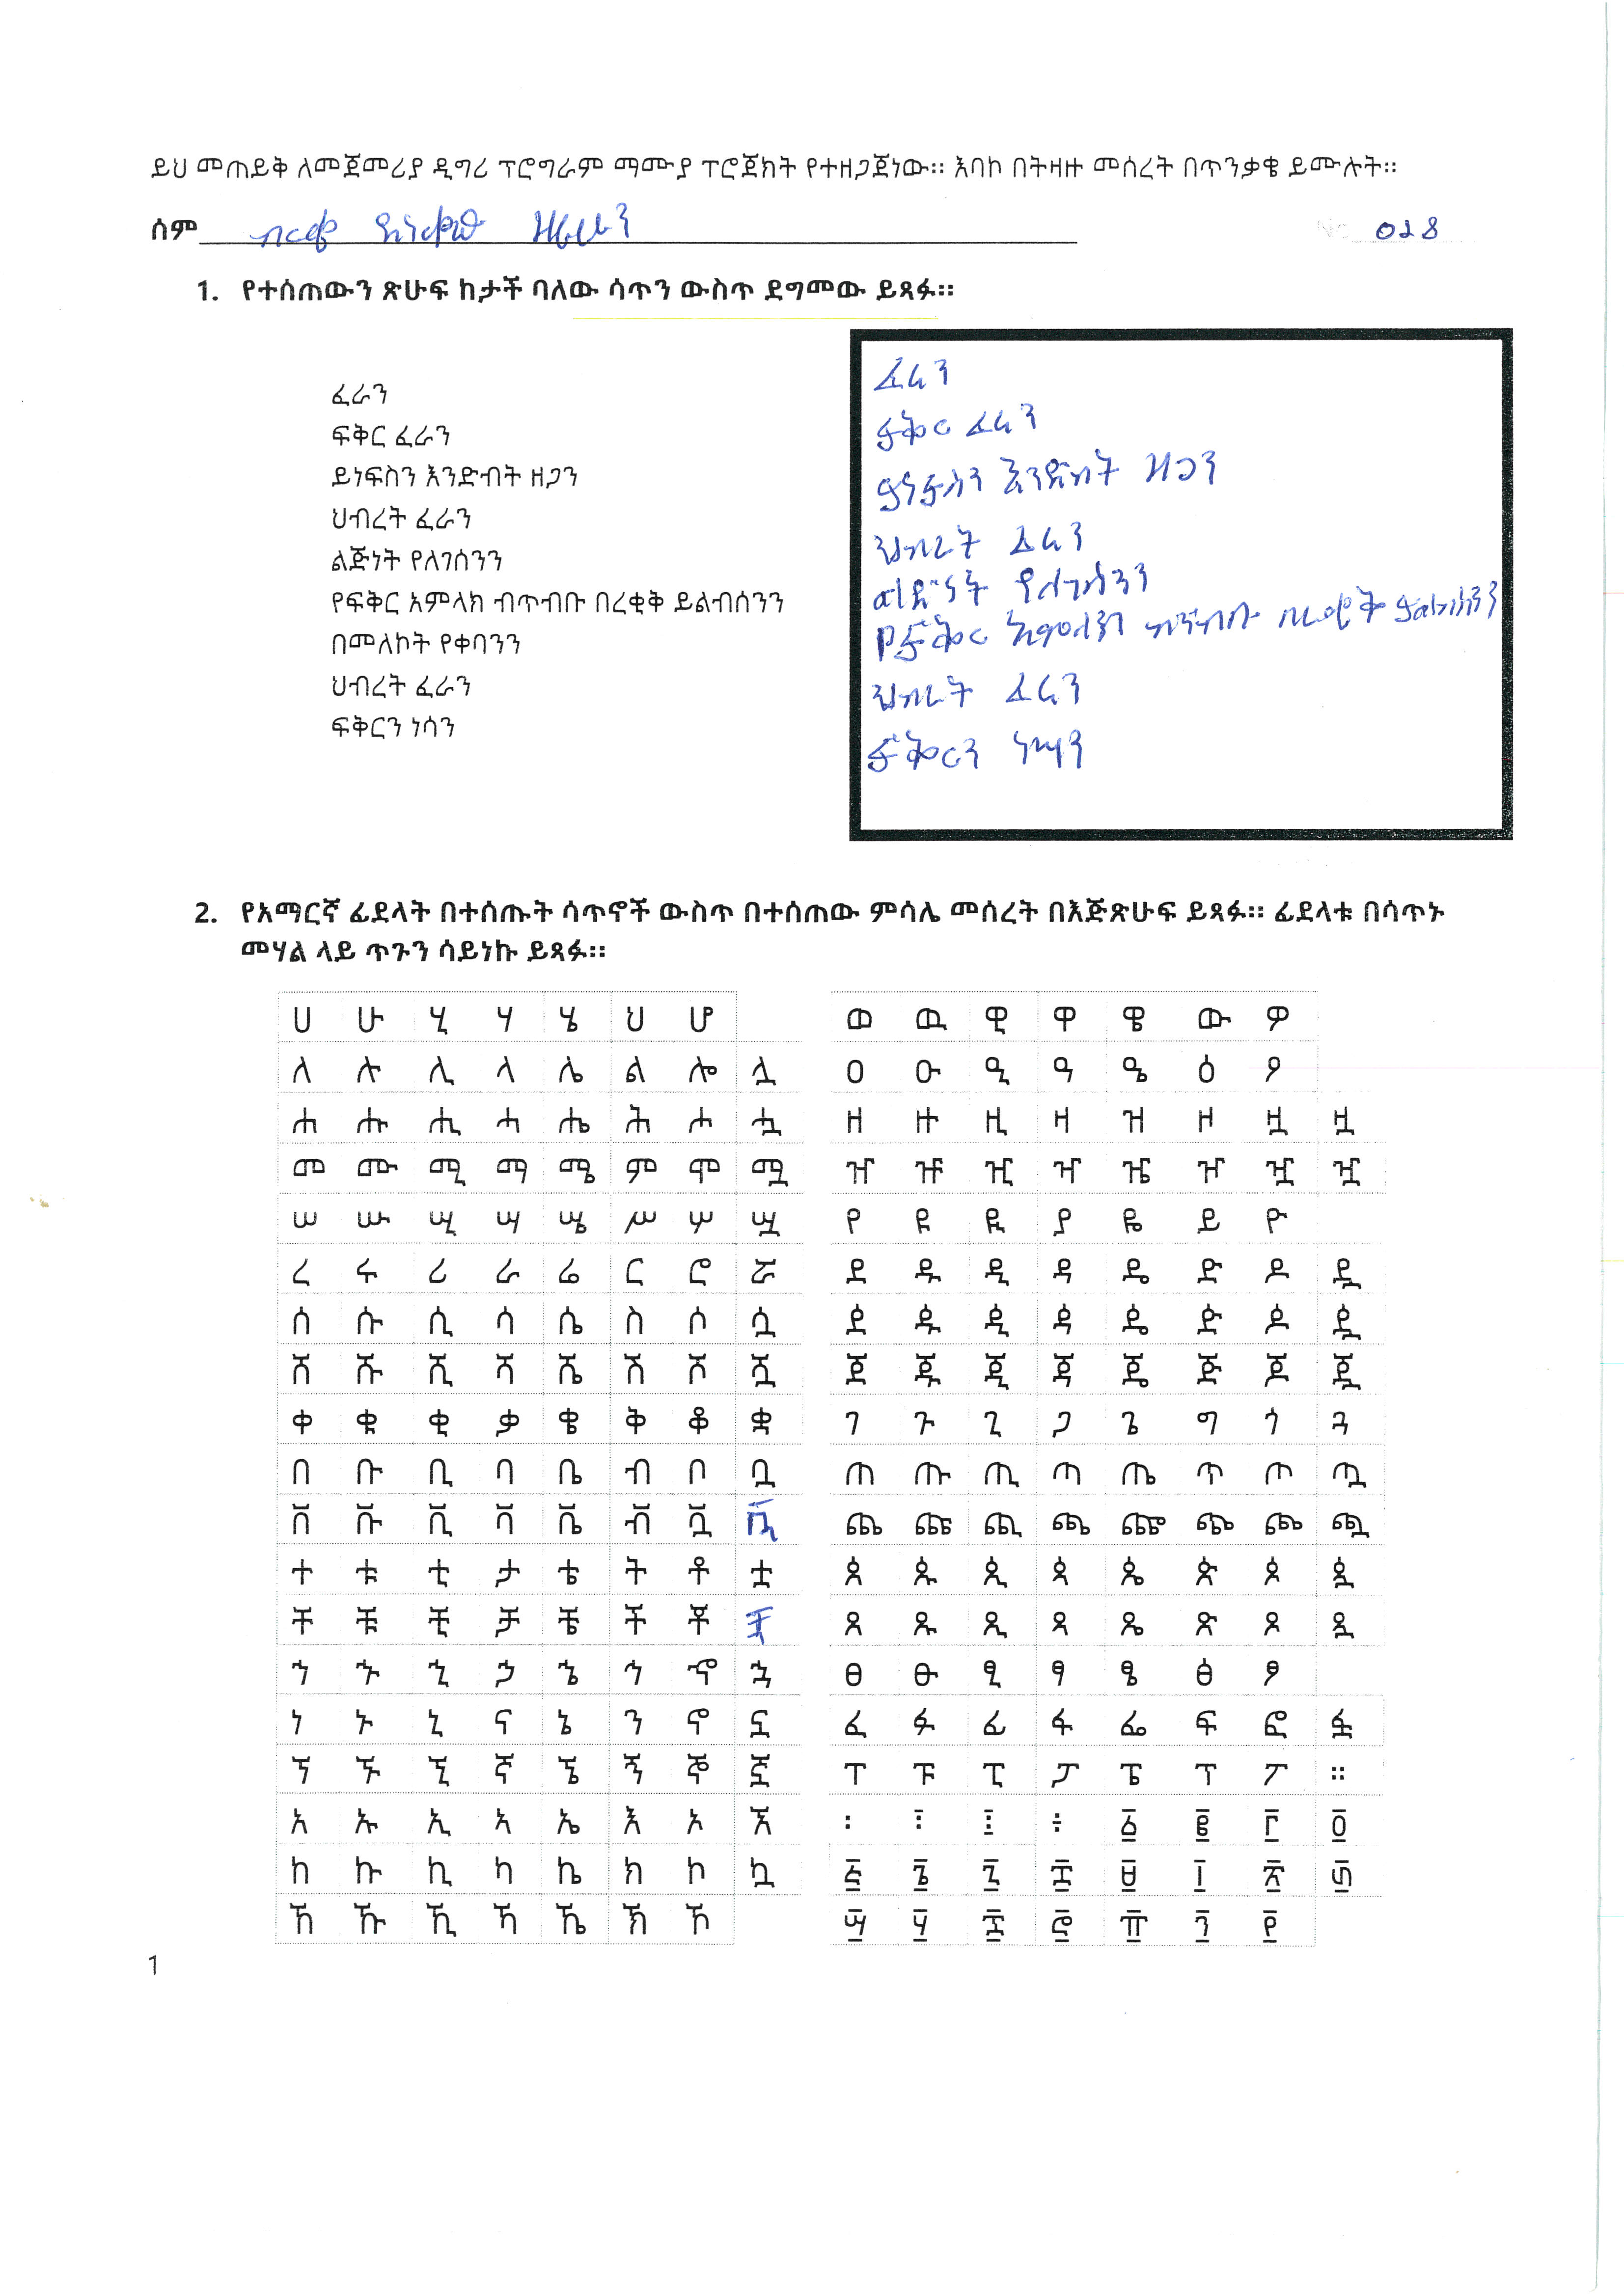 ይህ መጠይቅ ለመጀመሪያ ዲግሪ ፕሮግራም ማሙያ ፕሮጀክት የተዘጋጀነው። እባኮ በትዛዙ መሰረት በጥንቃቄ ይሙሉት።
ሰም
No 028
1. የተሰጠውን ጽሁፍ ከታች ባለው ሳጥን ውስጥ ደግመው ይጻፉ።
ፈራን
ፍቅር ፈራን
ይነፍስን እንድብት ዘጋን
ህብረት ፈራን
ልጅነት የለገሰንን
የፍቅር አምላክ ብጥብቡ በረቂቅ ይልብሰንን
በመለኮት የቀባንን
ህብረት ፈራን
ፍቅርን ነሳን
ፈራን
ፍቅር ፈራን
ይነፍስን እንድብት ዘጋን
ህብረት ፈራን
ልጅነት የለገሰንን
የፍቅር አምላክ ብጥብቡ በረቂቅ ይልብሰንን
ህብረት ፈራን
ፍቅርን ነሳን
2. የአማርኛ ፊደላት በተሰጡት ሳጥኖች ውስጥ በተሰጠው ምሳሌ መሰረት በእጅጽሁፍ ይጻፉ። ፊደላቱ በሳጥኑ
መሃል ላይ ጥጉን ሳይነኩ ይጻፉ።
ሀ ሁ ሂ ሃ ሄ ህ ሆ
ለ ሉ ሊ ላ ሌ ል ሎ ሏ
ሐ ሑ ሒ ሓ ሔ ሕ ሖ ሗ
መ ሙ ሚ ማ ሜ ም ሞ ሟ
ሠ ሡ ሢ ሣ ሤ ሥ ሦ ሧ
ረ ሩ ሪ ራ ሬ ር ሮ ሯ
ሰ ሱ ሲ ሳ ሴ ስ ሶ ሷ
ሸ ሹ ሺ ሻ ሼ ሽ ሾ ሿ
ቀ ቁ ቂ ቃ ቄ ቅ ቆ ቋ
በ ቡ ቢ ባ ቤ ብ ቦ ቧ
ቨ ቩ ቪ ቫ ቬ ቭ ቯ ቯ
ተ ቱ ቲ ታ ቴ ት ቶ ቷ
ቸ ቹ ቺ ቻ ቼ ች ቾ ቿ
ኀ ኁ ኂ ኃ ኄ ኅ ኆ ኋ
ነ ኑ ኒ ና ኔ ን ኖ ኗ
ኘ ኙ ኚ ኛ ኜ ኝ ኞ ኟ
አ ኡ ኢ ኣ ኤ እ ኦ ኧ
ከ ኩ ኪ ካ ኬ ክ ኮ ኳ
ኸ ኹ ኺ ኻ ኼ ኽ ኾ
ወ ዉ ዊ ዋ ዌ ው ዎ
ዐ ዑ ዒ ዓ ዔ ዕ ዖ
ዘ ዙ ዚ ዛ ዝ ዞ ዟ ዟ
ዠ ዡ ዢ ዣ ዤ ዦ ዧ ዧ
የ ዩ ዪ ያ ዬ ይ ዮ
ደ ዱ ዲ ዳ ዴ ድ ዶ ዷ
ዸ ዹ ዺ ዻ ዼ ዽ ዾ ዿ
ጀ ጁ ጂ ጃ ጄ ጅ ጆ ጇ
ገ ጉ ጊ ጋ ጌ ግ ጎ ጓ
ጠ ጡ ጢ ጣ ጤ ጥ ጦ ጧ
ጨ ጩ ጪ ጫ ጬ ጭ ጮ ጯ
ጰ ጱ ጲ ጳ ጴ ጵ ጶ ጷ
ጸ ጹ ጺ ጻ ጼ ጽ ጾ ጿ
ፀ ፁ ፂ ፃ ፄ ፅ ፆ
ፈ ፉ ፊ ፋ ፌ ፍ ፎ ፏ
ፐ ፑ ፒ ፓ ፔ ፕ ፖ ።
፡ ፣ ፤ ÷ ፩ ፪ ፫ ፬
፭ ፮ ፯ ፰ ፱ ፲ ፳ ፴
፵ ፶ ፷ ፸ ፹ ፺ ፻
1